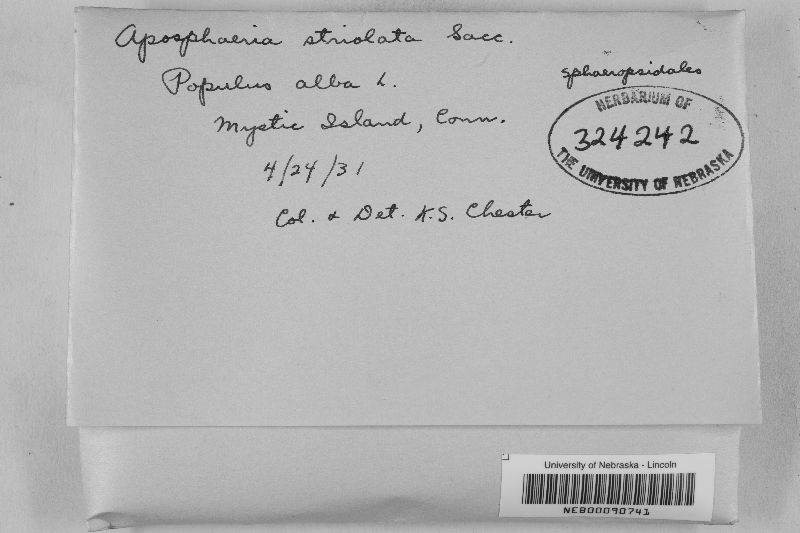 Aposphaeria striolata Sacc.
Populus alba L.
Mystic Island, Conn.
4/24/31
Col. & Det. K.S. Chester
Sphaeropsidales
HERBARIUM OF
324242
THE UNIVERSITY OF NEBRASKA
University of Nebraska - Lincoln
NEB00090741